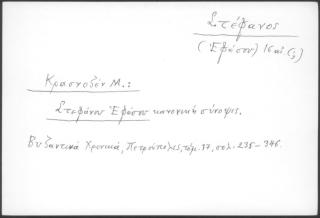 Στέφανος
(Ἐφέσου)
Κρασνοζέν Μ.:
Στεφάνου Ἐφέσου κανονικὴ σύνοψις.
Βυζαντινὰ Χρονικά, Πετρούπολις, τόμ. 17, σελ. 235-246.